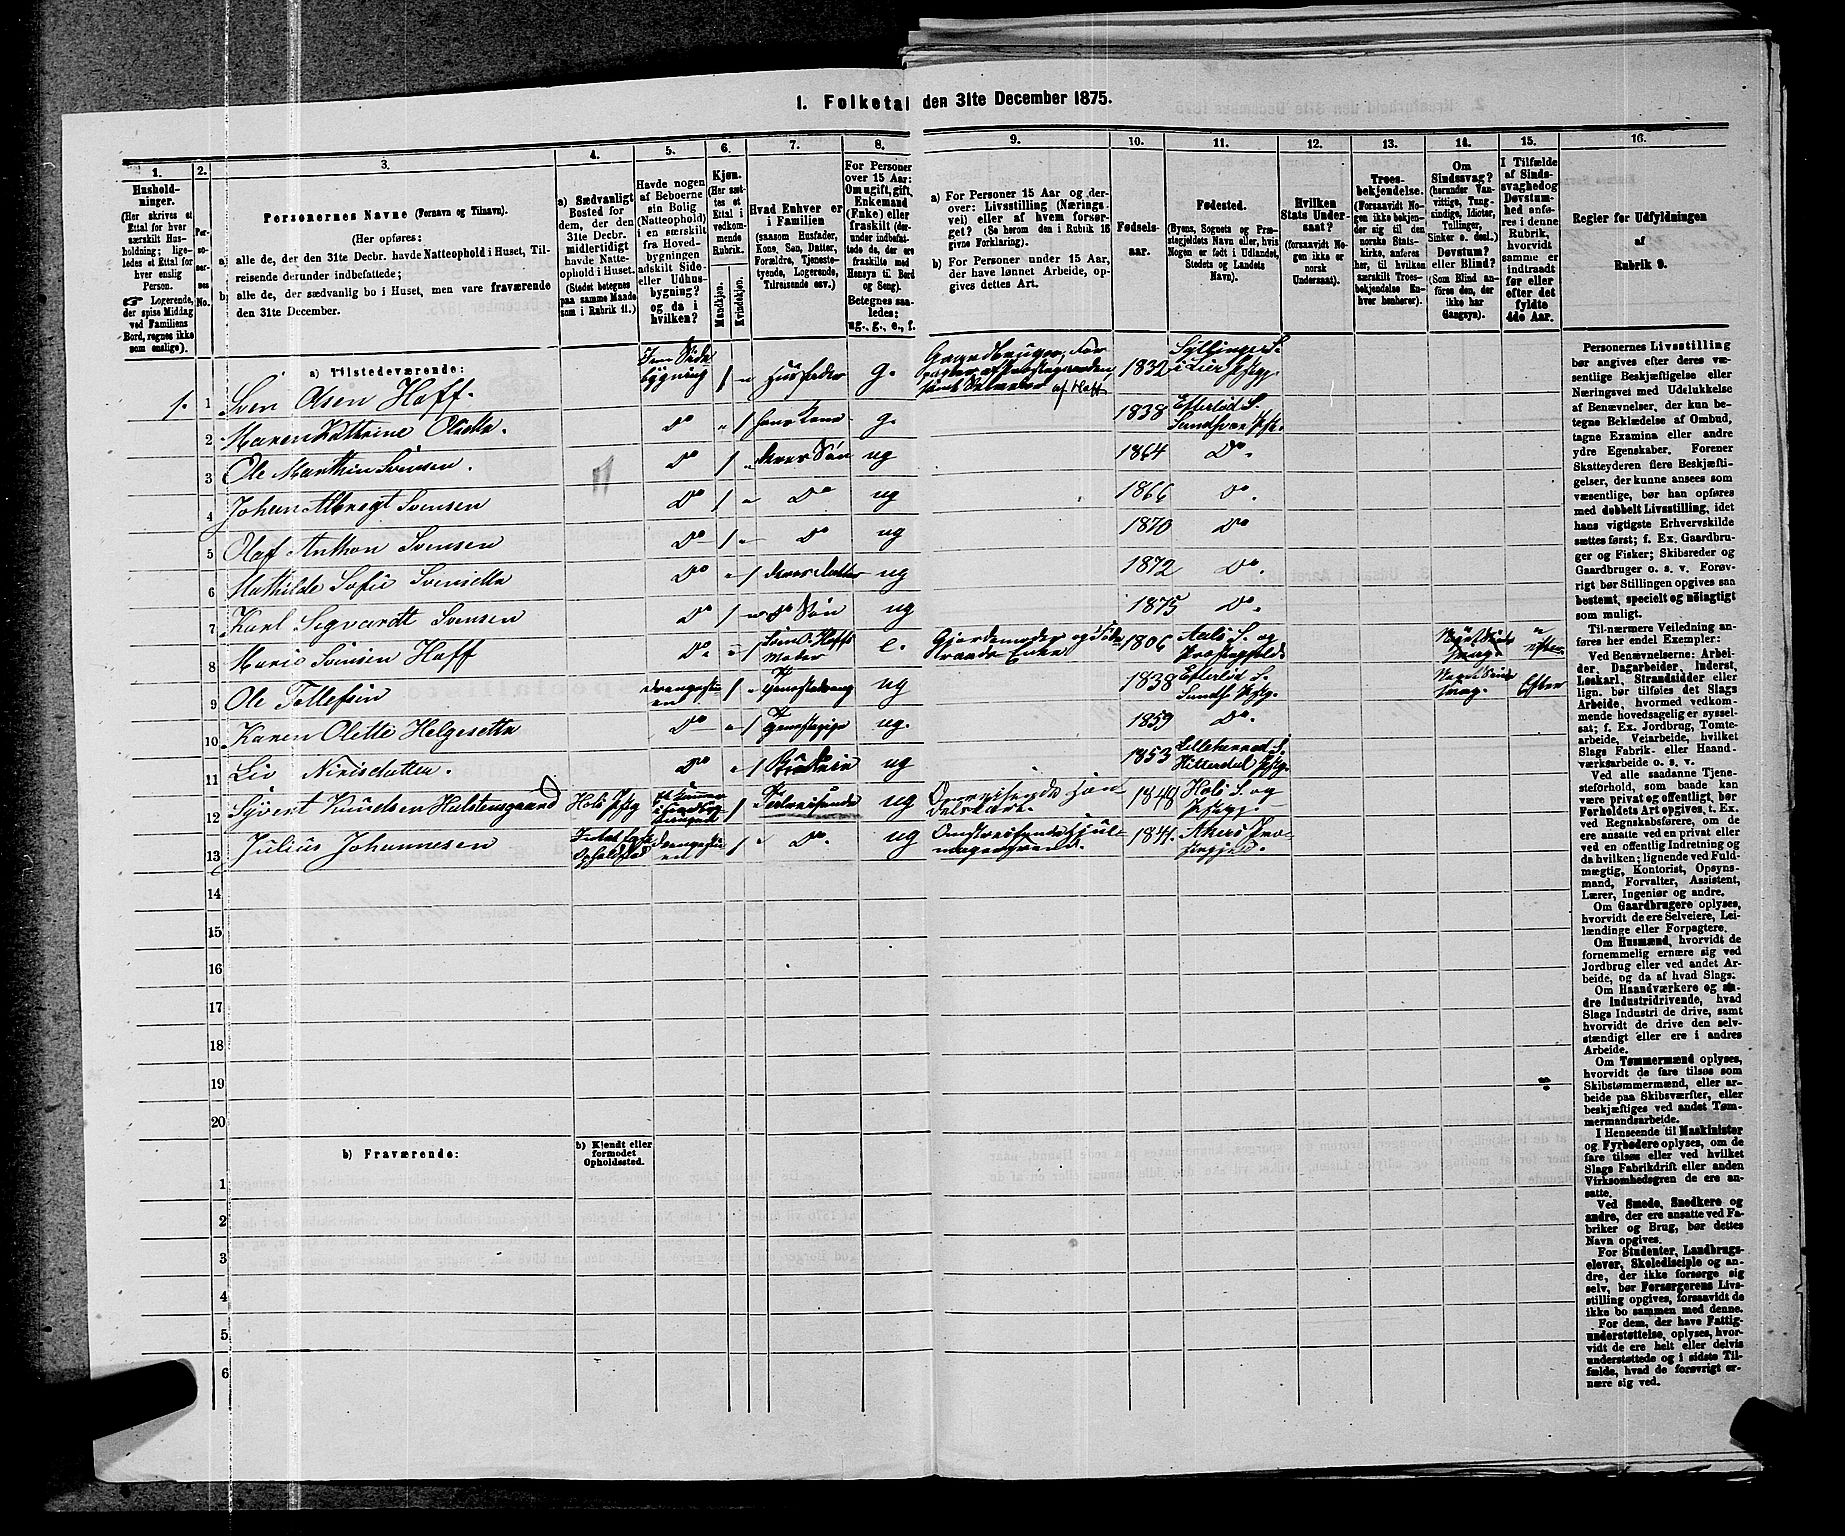 1. Folketal den 31te December 1875.
1.
2.
3.
4.
5.
6.
7.
8.
9.
10.
11.
12.
13.
14.
15.
16.
Hushold-
ninger.
(Her skrives et
Ettal for hver
særskilt Hus-
holdning; lige-
ledes et Ettal for
hver enslig
Person.
☞ Logerende,
der spise Middag
ved Familiens
Bord, regnes ikke
som enslige).
Per-
so-
ner-
nes
No.
Personernes Navne (Fornavn og Tilnavn).
(Her opføres:
a) alle de, der den 31te Decbr. havde Natteophold i Huset, Til-
reisende derunder indbefattede;
b) alle de, der sædvanlig bo i Huset, men vare fraværende
den 31te December.
a) Sædvanligt
Bosted for
dem, der den
31te Decbr.
midlertidigt
havde Natte-
ophold i Huset.
(Stedet betegnes
paa samme Maade
som i Rubrik 11.)
Havde nogen
af Beboerne
sin Bolig
(Natteophold)
i en særskilt
fra Hoved-
bygningen
adskilt Side-
eller Udhus-
bygning?
og da i
hvilken?
Kjøn.
(Her sæt-
tes et
Ettal i
vedkom-
mende
Rubrik.)
Mandkjøn.
Kvindekjøn.
Hvad Enhver er
i Familien
(saasom Husfader,
Kone, Søn, Datter,
Forældre, Tjeneste-
tyende, Logerende,
Tilreisende osv.)
For Personer
over 15 Aar:
Om ugift, gift,
Enkemand
(Enke) eller
fraskilt (der-
under indbefat-
tede de, der ere
fraskilte med
Hensyn til Bord
og Seng).
Betegnes saa-
ledes:
ug., g., e., f.
a) For Personer 15 Aar og der-
over: Livsstilling (Nærings-
vei) eller af hvem forsør-
get? (Se herom den i Rubrik 16
givne Forklaring).
b) For Personer under 15 Aar,
der have lønnet Arbeide, op-
gives dettes Art.
Fødsels-
aar.
Fødested.
(Byens, Sognets og Præ-
stegjeldets Navn eller, hvis
Nogen er født i Udlandet,
Stedets og Landets
Navn).
Hvilken
Stats Under-
saat?
(forsaavidt No-
gen ikke er
norsk
Undersaat).
Troes-
bekjendelse.
(Forsaavidt No-
gen ikke bekjen-
der sig til den
norske Stats-
kirke, anføres
her, til hvilken
særskilt Troes-
bekjendelse En-
hver henhører).
Om
Sindssvag?
(herunder Van-
vittige, Tung-
sindige, Idioter,
Tullinger,
Sinker o. desl.)
Døvstum?
eller Blind?
(Som Blind an-
føres den, der
ikke har
Gangsyn).
I Tilfælde
af Sinds-
svaghed og
Døvstum-
hed anfø-
res i denne
Rubrik,
hvorvidt
samme er
indtraadt
før eller
efter det
fyldte
4de Aar.
Regler for Udfyldningen
af
Rubrik 9.
a) Tilstedeværende:
1. 1 Sven Olsen Hoff. I en Side bygning 1 " Husfader g. Gaardbruger, For 1832 Syllinge S. i Lier Pstgj.
2 Maren Kathrine Olsdtr. Do " 1 hans Kone g. 1838 Eftelød S.
3 Ole Marthin Svensen. Do 1 " deres Søn ug 1864 Do.
4 Johan Albregt Svensen Do 1 " Do ug 1866 Do.
5 Olaf Anthon Svensen Do 1 " Do ug 1870 Do
6 Mathilde Sofie Svensdtr Do " 1 deres datter ug 1872 Do.
7 Karl Segvardt Svensen Do 1 " Do Søn ug 1875 Do.
8 Marie Svensen Hoff Do. " 1 Sven O. Hoffs Moder e. 1806 Aals S. og Præstegjeld
9 Ole Tollefsen 1 " ug 1838 Efteløt S.
10 Karen Olette Helgesdtr Do " 1 Tjenestepige ug. 1859 Do.
11 Liv Do " 1 Budeie ug 1853 Lilleherred S. Hitterdal Pstgj.
12 Syvert Knudsen Halstensgaard Hols Pstgj 1 " Tilreisende ug Omreisende 1848 Hols S. og Pstgj.
13 Julius Johannesen 1 " Do. ug 1841. Akers Præ-
stegjeld.
14
15
16
17
18
19
20
b) Fraværende:
b) Kjendt eller
formodet
Opholdssted.
1
2
3
4
5
6
Personernes Livsstilling
bør angives efter deres væ-
sentlige Beskjæftigelse eller
Næringsvei med Udelukkelse
af Benævnelser, der kun be-
tegne Beklædelse af Ombud,
tagne Examina eller andre
ydre Egenskaber. Forener
Skatteyderen flere Beskjæfti-
gelser, der kunne ansees som
væsentlige, bør han opføres
med dobbelt Livsstilling, idet
hans vigtigste Erhvervskilde
sættes først; f. Ex. Gaardbru-
ger og Fisker; Skibsreder og
Gaardbruger o. s. v. Forøv-
rigt bør Stillingen opgives saa
bestemt, specielt og nøiagtigt
som muligt.
Til nærmere Veiledning an-
føres her endel Exempler:
Ved Benævnelserne: Arbei-
der, Dagarbeider, Inderst,
Løskarl, Strandsidder eller
lign. bør tilføies det Slags
Arbeide, hvormed vedkom-
mende hovedsagelig er syssel-
sat; f. Ex. Jordbrug, Tomte-
arbeide, Veiarbeide, hvilket
Slags Fabrik- eller Haand-
værksarbeide o. s. v.
Ved alle saadanne Tjene-
steforhold, som baade kan
være privat og offentligt, bør
Forholdets Art opgives, t. Ex.
ved Regnskabsførere, om de
ere ansatte ved en privat eller
ved en offentlig Indretning og
da hvilken; lignende ved Fuld-
mægtig, Kontorist, Opsyns-
mand, Forvalter, Assistent,
Lærer, Ingeniør og andre.
Om Gaardbrugere oplyses,
hvorvidt de ere Selveiere, Lei-
lændinge eller Forpagtere.
Om Husmænd, hvorvidt de
fornemmelig ernære sig ved
Jordbrug eller ved andet Ar-
beide, og da af hvad Slags.
Om Haandværkere og an-
dre Industridrivende, hvad
Slags Industri de drive, samt
hvorvidt de drive den selv-
stændigt eller ere i andres
Arbeide.
Om Tømmermænd oplyses,
hvorvidt de fare tilsøs som
Skibstømmermænd, eller ar-
beide paa Skibsværfter, eller
beskjæftiges ved andet Tøm-
mermandsarbeide.
I Henseende til Maskinister
og Fyrbødere oplyses, om de
fare tilsøs eller ved hvilket
Slags Fabrikdrift eller anden
Virksomhedsgren de ere an-
satte.
Ved Smede, Snedkere og
andre, der ere ansatte ved Fa-
briker og Brug, bør dettes
Navn opgives.
For Studenter, Landbrugs-
elever, Skoledisciple og an-
dre, der ikke forsørge sig
selv, bør Forsørgerens Livs-
stilling opgives, forsaavidt de
ikke bo sammen med denne.
For dem, der have Fattig-
understøttelse, oplyses, hvor-
vidt de ere helt eller delvis
understøttede og i sidste Til-
fælde, hvad de forøvrigt er-
nære sig ved.